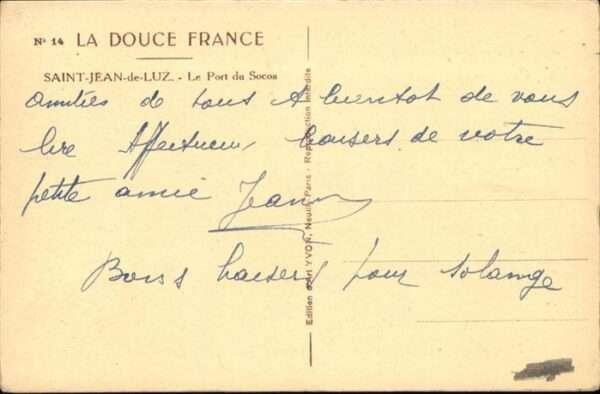 Nº 14 LA DOUCE FRANCE
SAINT-JEAN-de-LUZ. - Le Port du Socoa
Amitiés de tous A bientot de vous
lire Affectueux baisers de votre
petite amie Jeanne
Bons baisers pour Solange
Edition d'art YVON, Neuilly-Paris - Reproduction interdite